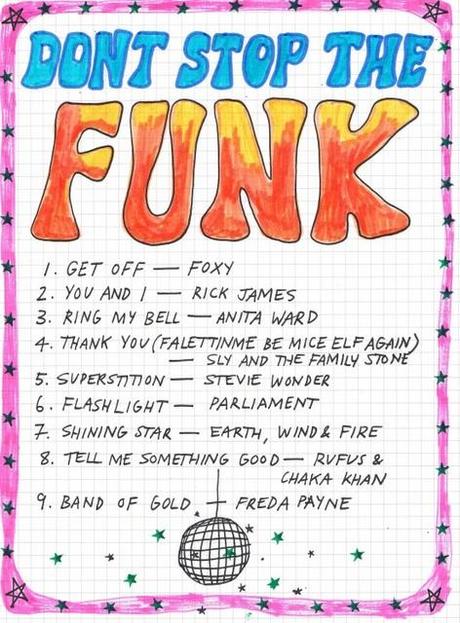 DONT STOP THE
FUNK
1. GET OFF — FOXY
2. YOU AND I — RICK JAMES
3. RING MY BELL — ANITA WARD
4. THANK YOU (FALETTINME BE MICE ELF AGAIN)
— SLY AND THE FAMILY STONE
5. SUPERSTITION — STEVIE WONDER
6. FLASHLIGHT — PARLIAMENT
7. SHINING STAR — EARTH, WIND & FIRE
8. TELL ME SOMETHING GOOD — RUFUS &
CHAKA KHAN
9. BAND OF GOLD — FREDA PAYNE